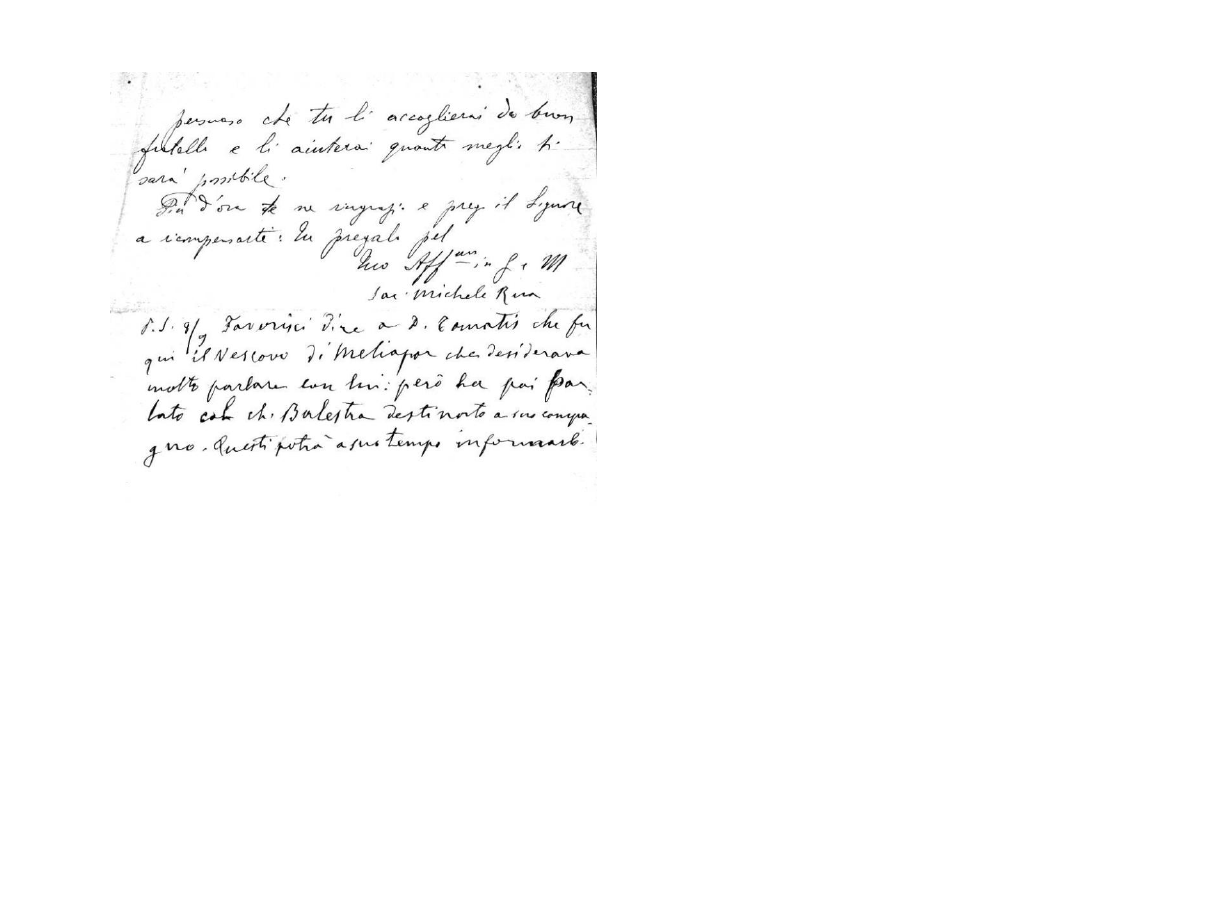 persuaso che tu li accoglierai da buon
fratello e li aiuterai quanto meglio ti
sarà possibile.
Fin d'ora te ne ringrazio e prego il Signore
a ricompensarti: Tu pregalo pel
Tuo Aff.mo in G. e M
Sac. Michele Rua
P.S. 9/9 Favorisci dire a D. Tomatis che fu
qui il Vescovo di Meliapor che desiderava
molto parlare con lui: però ha poi par-
lato col ch. Balestra destinato a suo compa-
gno. Questi potrà a suo tempo informarlo.